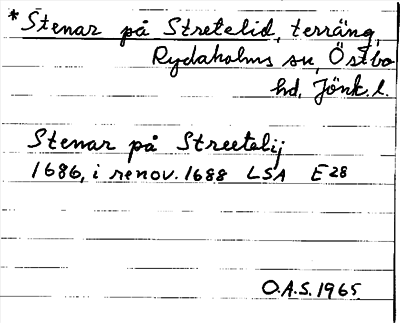 * Stenar på Stretelid, terräng,
Rydaholms sn, Östbo
hd, Jönk. l.
Stenar på Streetelij
1686, i renov. 1688 LSA E 28
O.A.S. 1965